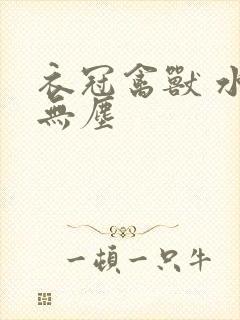 衣冠禽獸 水
無塵
一頓一只牛